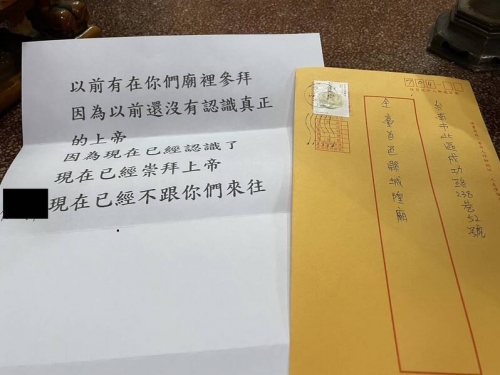 以前有在你們廟裡參拜
因為以前還沒有認識真正
的上帝
因為現在已經認識了
現在已經崇拜上帝
現在已經不跟你們來往
台南市北區成功路238巷52號
全臺首邑縣城隍廟